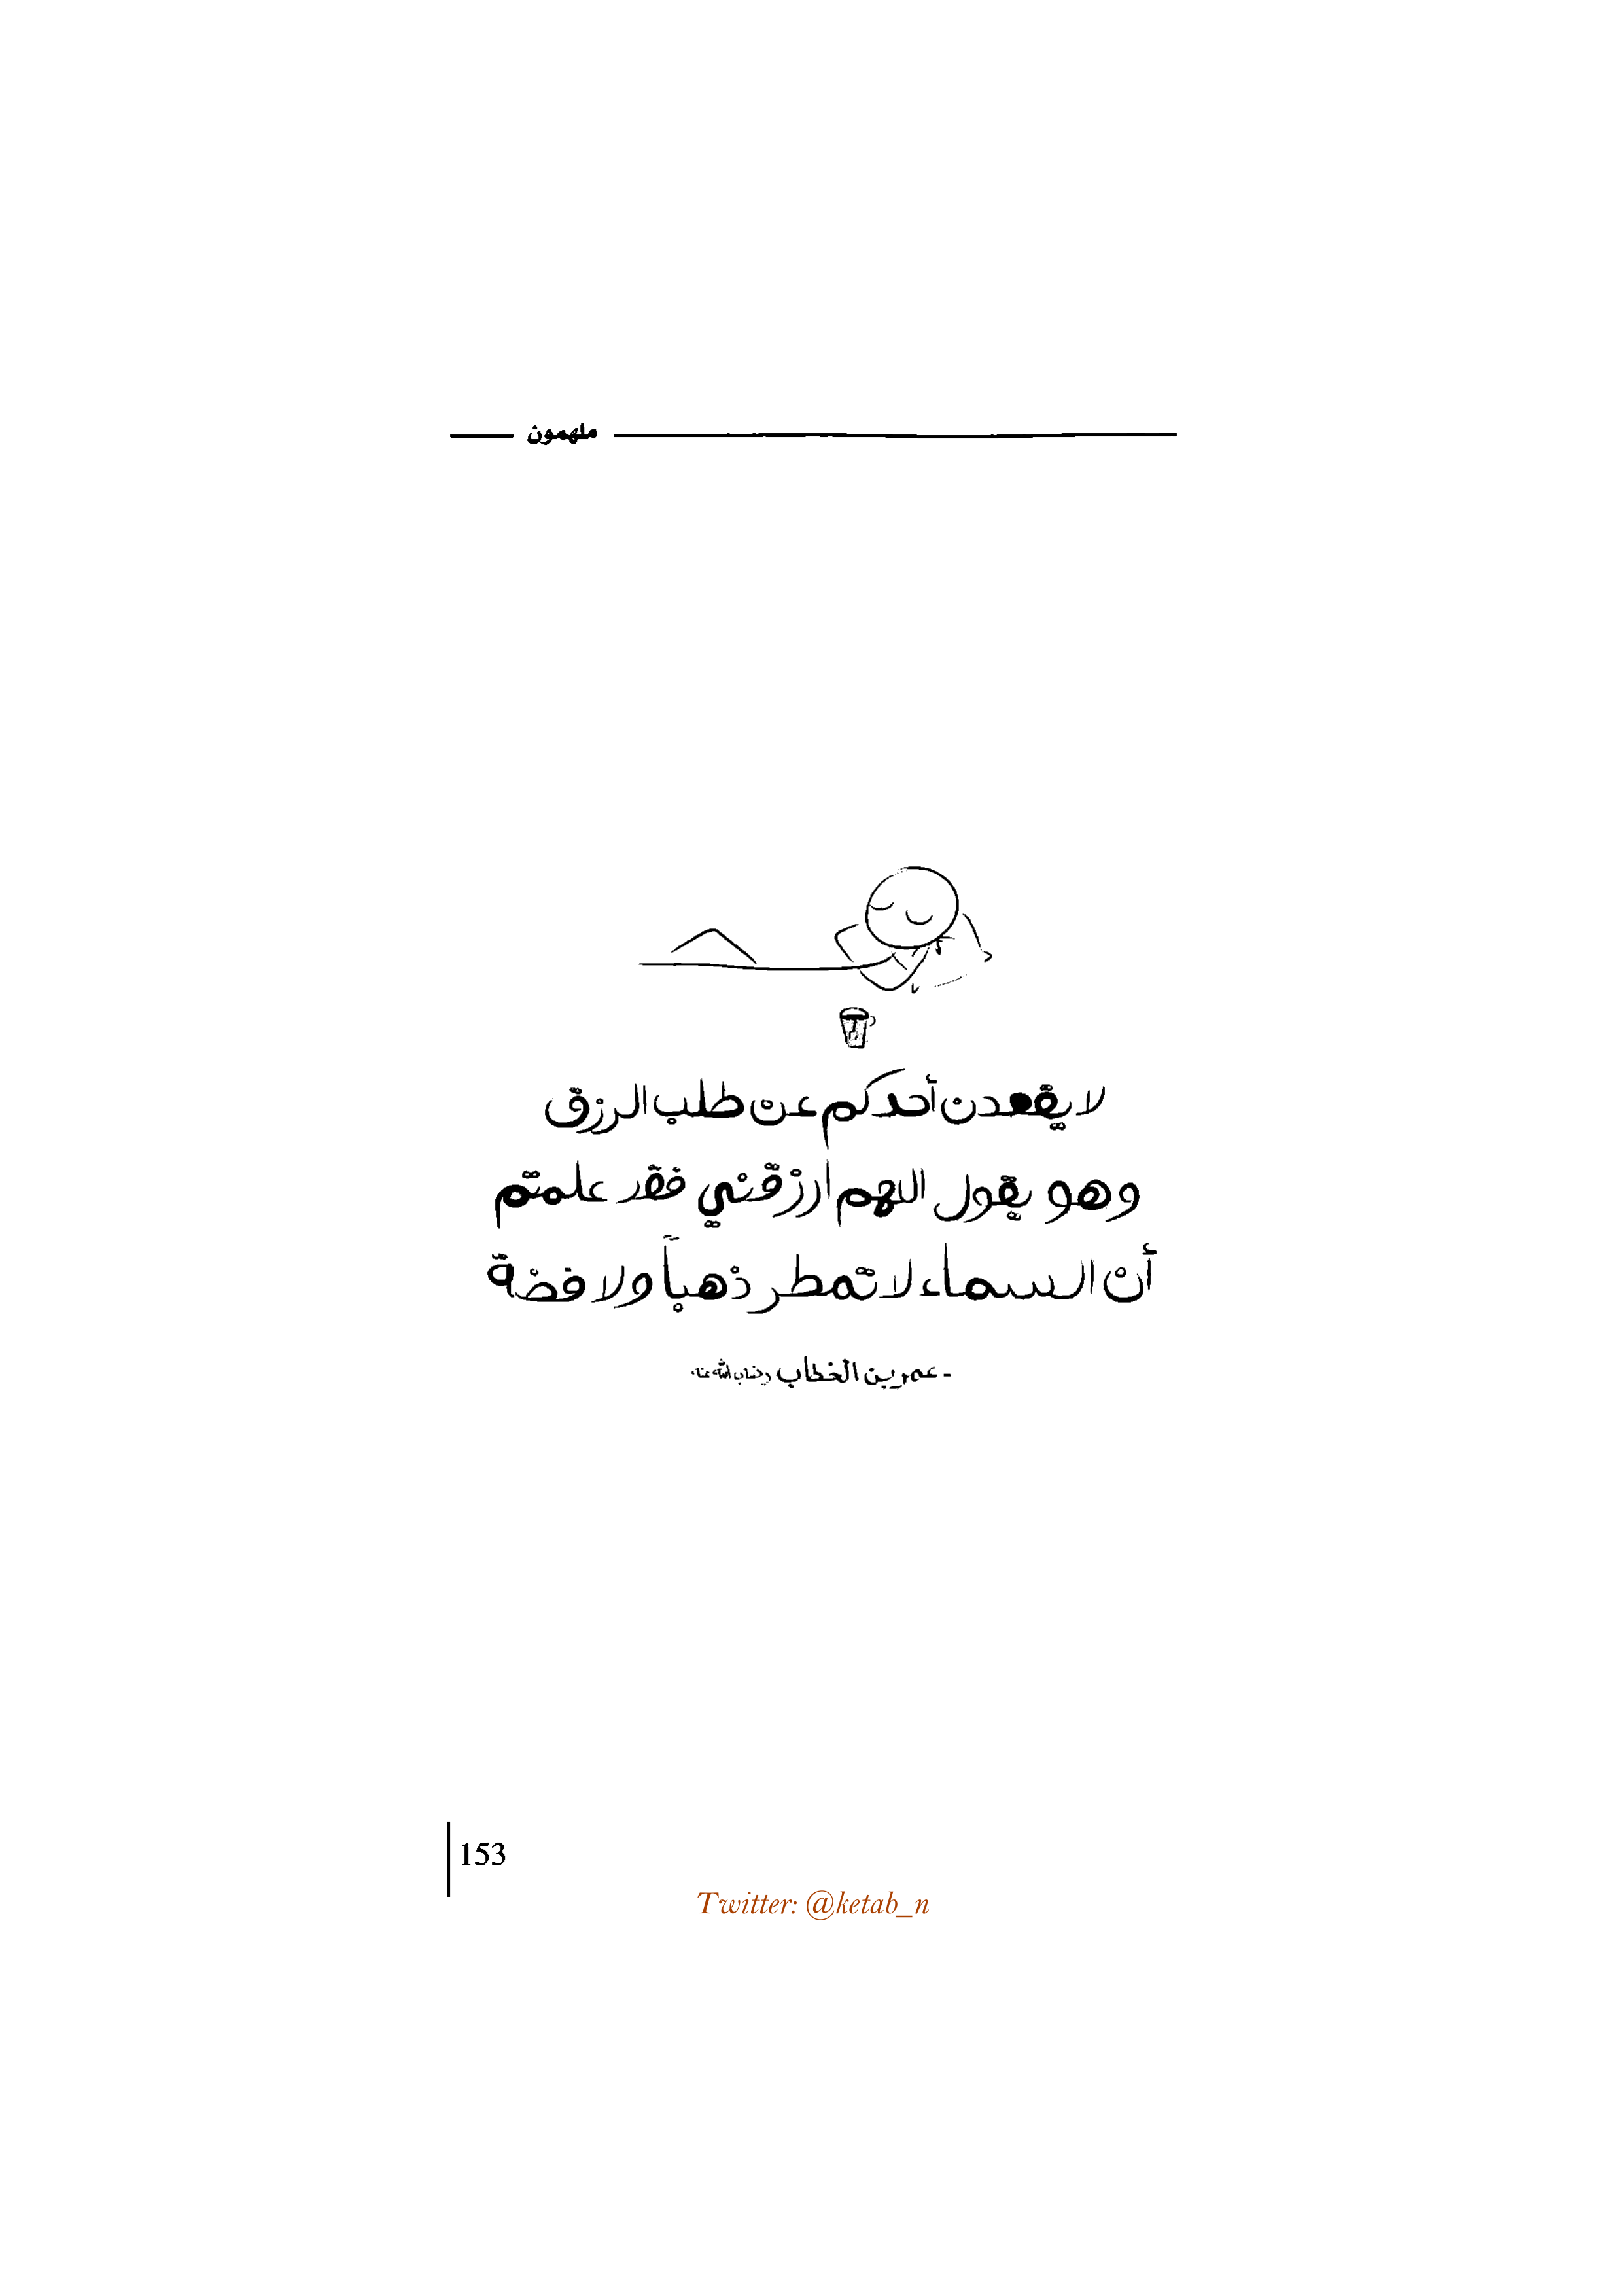 ملهمون
لا يقعدن أحدكم عن طلب الرزق
وهو يقول اللهم ارزقني فقد علمتم
أن السماء لا تمطر ذهباً ولا فضة
- عمر بن الخطاب رضي الله عنه
153
Twitter: @ketab_n